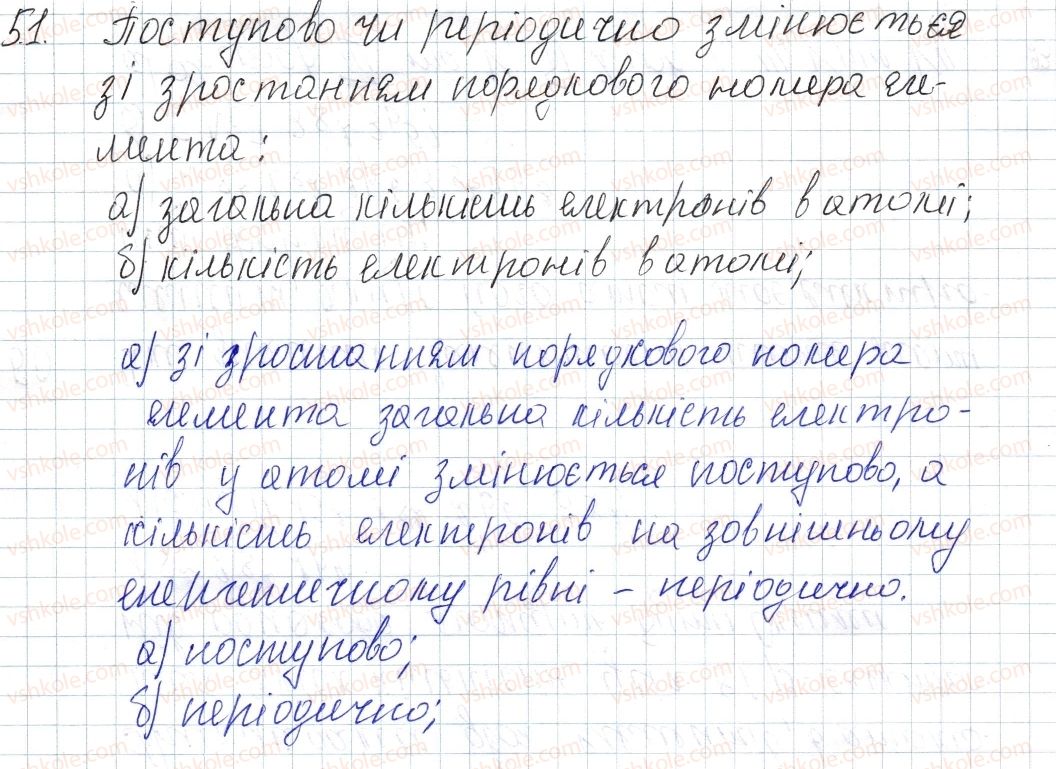 51. Поступово чи періодично змінюється
зі зростанням порядкового номера еле-
мента:
а) загальна кількість електронів в атомі;
б) кількість електронів в атомі;
а) зі зростанням порядкового номера
елемента загальна кількість електро-
нів у атомі змінюється поступово, а
кількість електронів на зовнішньому
енергетичному рівні – періодично.
а) поступово;
б) періодично;